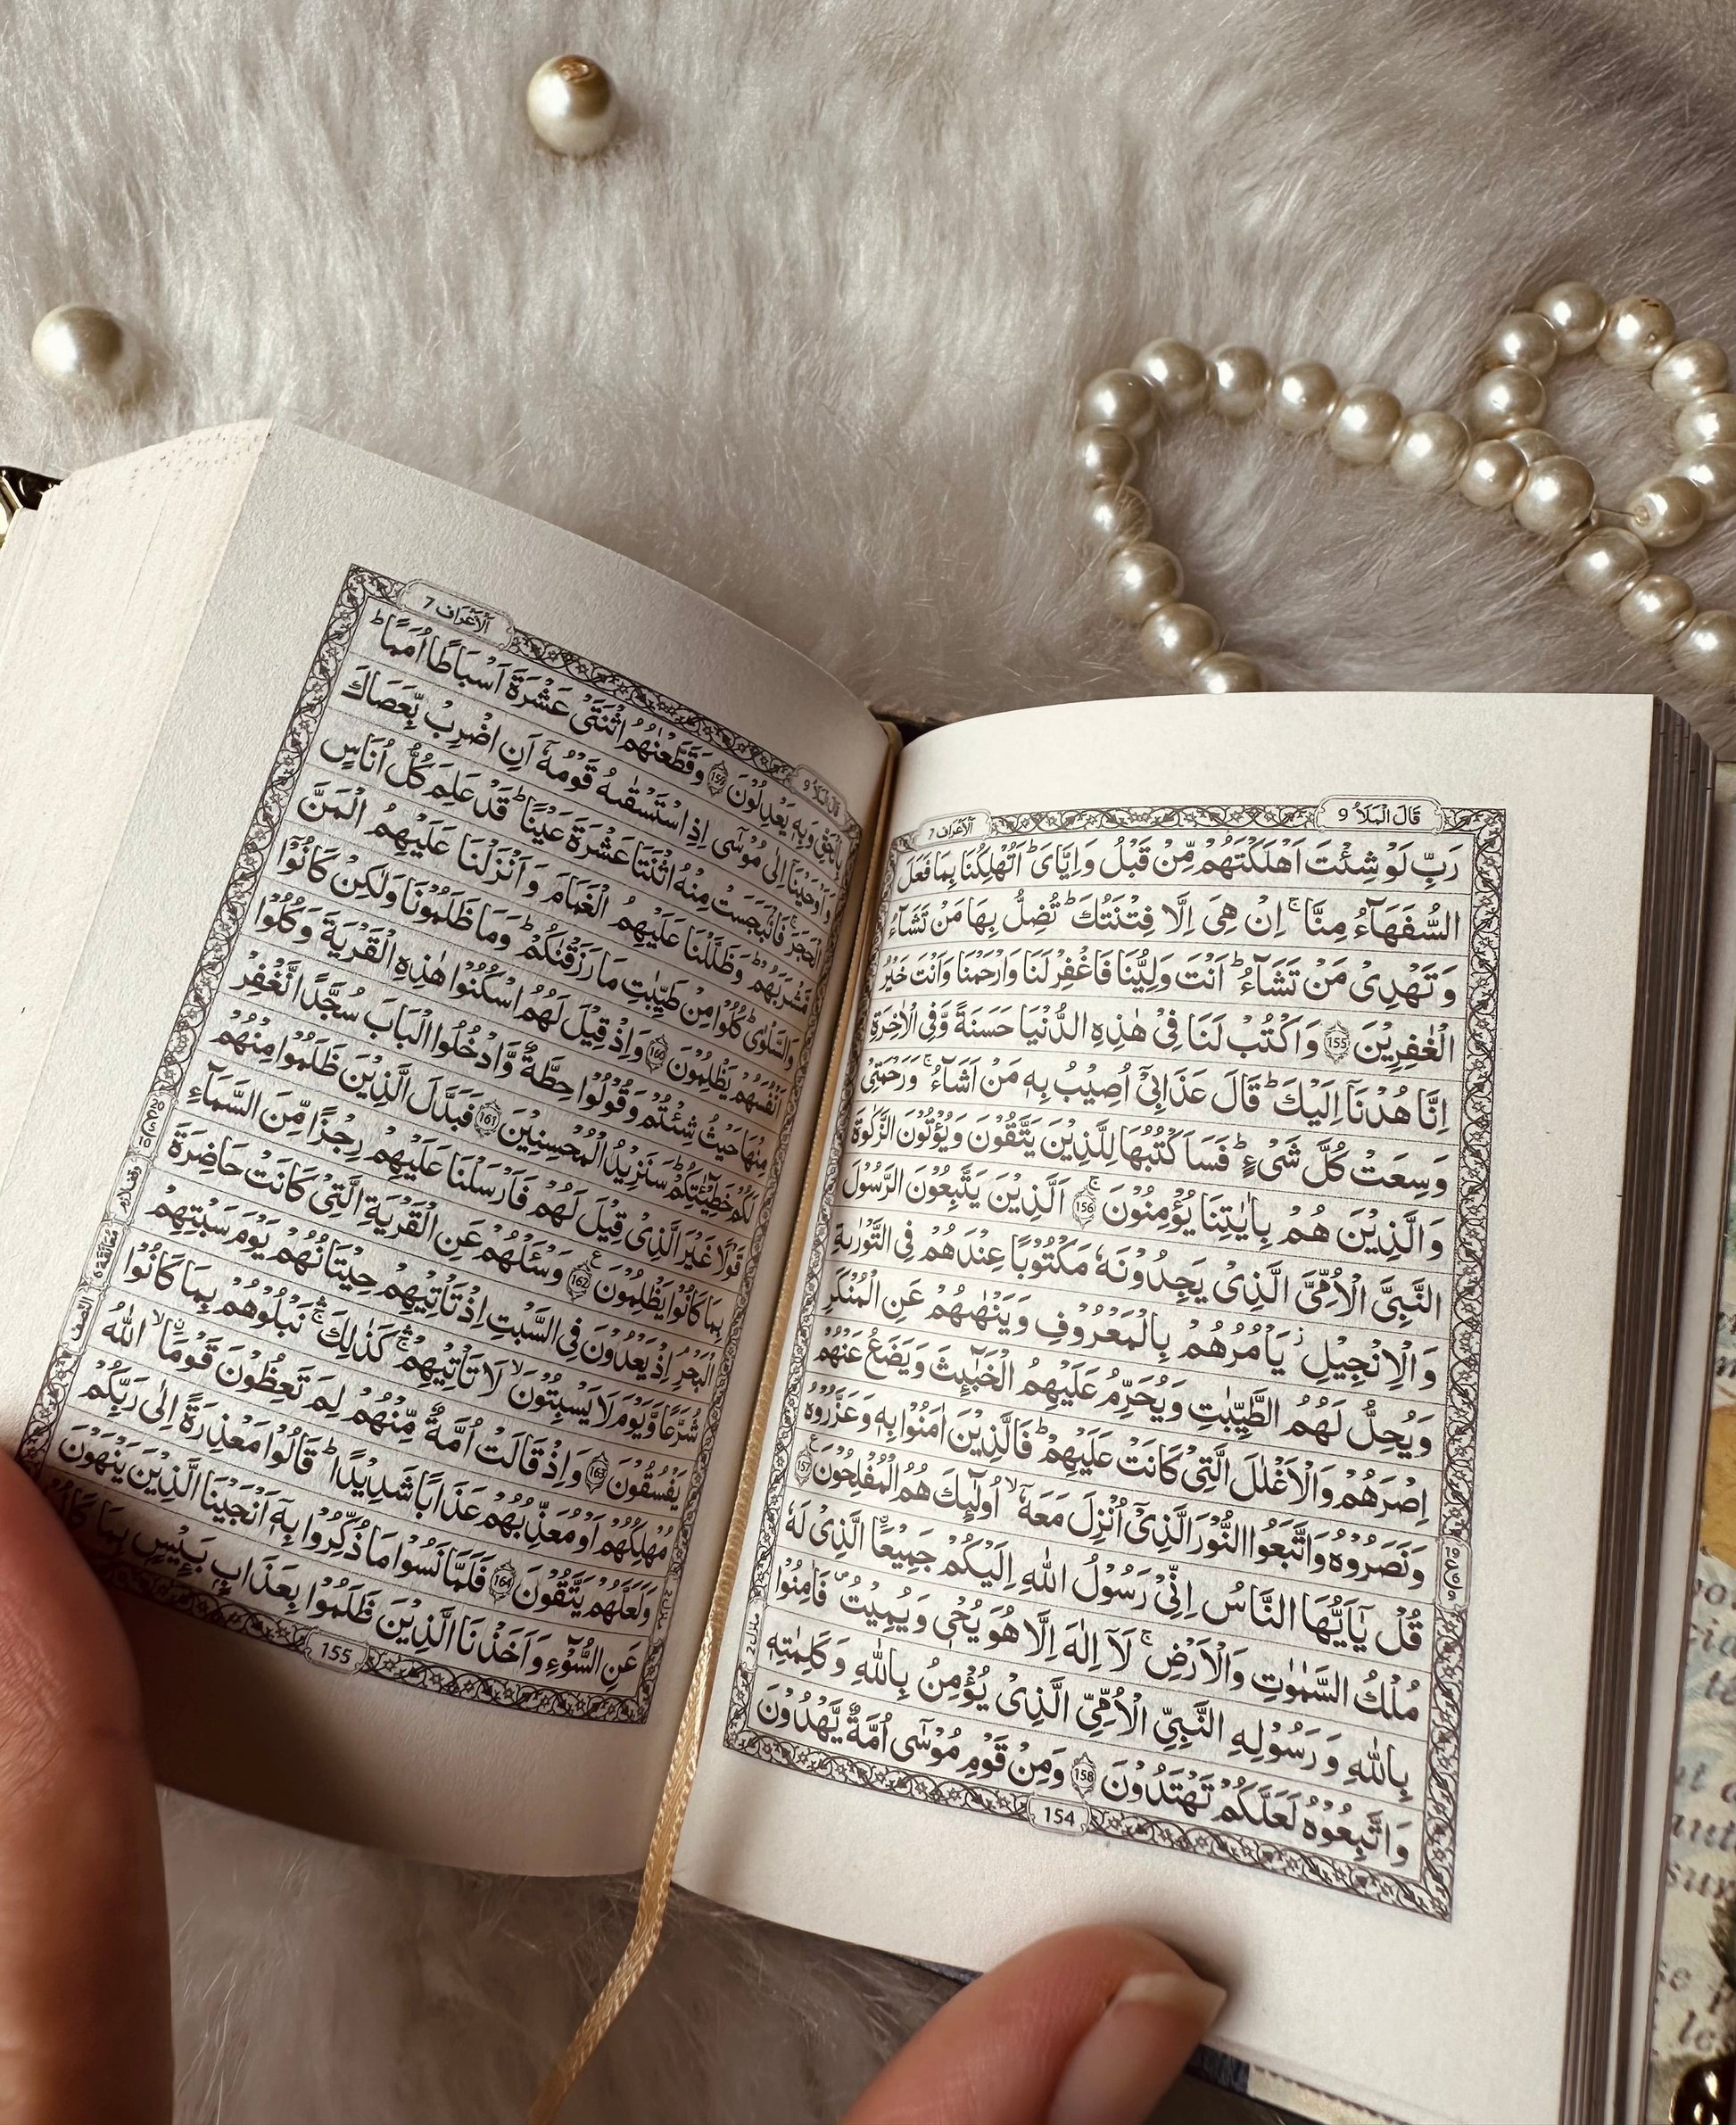 قَالَ الْمَلَاُ 9
اَلْاَعْرَاف 7
رَبِّ لَوْ شِئْتَ اَهْلَكْتَهُمْ مِّنْ قَبْلُ وَاِيَّايَ ؕ اَتُهْلِكُنَا بِمَا فَعَلَ
السُّفَهَآءُ مِنَّا ۚ اِنْ هِيَ اِلَّا فِتْنَتُكَ ؕ تُضِلُّ بِهَا مَنْ تَشَآءُ
وَتَهْدِيْ مَنْ تَشَآءُ ؕ اَنْتَ وَلِيُّنَا فَاغْفِرْ لَنَا وَارْحَمْنَا وَاَنْتَ خَيْرُ
الْغٰفِرِيْنَ 155 وَاكْتُبْ لَنَا فِيْ هٰذِهِ الدُّنْيَا حَسَنَةً وَّفِي الْاٰخِرَةِ
اِنَّا هُدْنَآ اِلَيْكَ ؕ قَالَ عَذَابِيْٓ اُصِيْبُ بِهٖ مَنْ اَشَآءُ ۚ وَرَحْمَتِيْ
وَسِعَتْ كُلَّ شَيْءٍ ؕ فَسَاَكْتُبُهَا لِلَّذِيْنَ يَتَّقُوْنَ وَيُؤْتُوْنَ الزَّكٰوةَ
وَالَّذِيْنَ هُمْ بِاٰيٰتِنَا يُؤْمِنُوْنَ ۚ 156 اَلَّذِيْنَ يَتَّبِعُوْنَ الرَّسُوْلَ
النَّبِيَّ الْاُمِّيَّ الَّذِيْ يَجِدُوْنَهٗ مَكْتُوْبًا عِنْدَهُمْ فِي التَّوْرٰىةِ
وَالْاِنْجِيْلِ ؗ يَاْمُرُهُمْ بِالْمَعْرُوْفِ وَيَنْهٰىهُمْ عَنِ الْمُنْكَرِ
وَيُحِلُّ لَهُمُ الطَّيِّبٰتِ وَيُحَرِّمُ عَلَيْهِمُ الْخَبٰٓئِثَ وَيَضَعُ عَنْهُمْ
اِصْرَهُمْ وَالْاَغْلٰلَ الَّتِيْ كَانَتْ عَلَيْهِمْ ؕ فَالَّذِيْنَ اٰمَنُوْا بِهٖ وَعَزَّرُوْهُ
وَنَصَرُوْهُ وَاتَّبَعُوا النُّوْرَ الَّذِيْٓ اُنْزِلَ مَعَهٗٓ ۙ اُولٰٓئِكَ هُمُ الْمُفْلِحُوْنَ 157
قُلْ يٰٓاَيُّهَا النَّاسُ اِنِّيْ رَسُوْلُ اللّٰهِ اِلَيْكُمْ جَمِيْعًا ۨالَّذِيْ لَهٗ
مُلْكُ السَّمٰوٰتِ وَالْاَرْضِ ۚ لَآ اِلٰهَ اِلَّا هُوَ يُحْيٖ وَيُمِيْتُ ۪ فَاٰمِنُوْا
بِاللّٰهِ وَرَسُوْلِهِ النَّبِيِّ الْاُمِّيِّ الَّذِيْ يُؤْمِنُ بِاللّٰهِ وَكَلِمٰتِهٖ
وَاتَّبِعُوْهُ لَعَلَّكُمْ تَهْتَدُوْنَ 158 وَمِنْ قَوْمِ مُوْسٰٓى اُمَّةٌ يَّهْدُوْنَ
منزل 2
154
قَالَ الْمَلَاُ 9
اَلْاَعْرَاف 7
بِالْحَقِّ وَبِهٖ يَعْدِلُوْنَ 159 وَقَطَّعْنٰهُمُ اثْنَتَيْ عَشْرَةَ اَسْبَاطًا اُمَمًا ؕ
وَاَوْحَيْنَآ اِلٰى مُوْسٰٓى اِذِ اسْتَسْقٰىهُ قَوْمُهٗٓ اَنِ اضْرِبْ بِّعَصَاكَ
الْحَجَرَ ۚ فَانْۢبَجَسَتْ مِنْهُ اثْنَتَا عَشْرَةَ عَيْنًا ؕ قَدْ عَلِمَ كُلُّ اُنَاسٍ
مَّشْرَبَهُمْ ؕ وَظَلَّلْنَا عَلَيْهِمُ الْغَمَامَ وَاَنْزَلْنَا عَلَيْهِمُ الْمَنَّ
وَالسَّلْوٰى ؕ كُلُوْا مِنْ طَيِّبٰتِ مَا رَزَقْنٰكُمْ ؕ وَمَا ظَلَمُوْنَا وَلٰكِنْ كَانُوْٓا
اَنْفُسَهُمْ يَظْلِمُوْنَ 160 وَاِذْ قِيْلَ لَهُمُ اسْكُنُوْا هٰذِهِ الْقَرْيَةَ وَكُلُوْا
مِنْهَا حَيْثُ شِئْتُمْ وَقُوْلُوْا حِطَّةٌ وَّادْخُلُوا الْبَابَ سُجَّدًا نَّغْفِرْ
لَكُمْ خَطِيْٓئٰتِكُمْ ؕ سَنَزِيْدُ الْمُحْسِنِيْنَ 161 فَبَدَّلَ الَّذِيْنَ ظَلَمُوْا مِنْهُمْ
قَوْلًا غَيْرَ الَّذِيْ قِيْلَ لَهُمْ فَاَرْسَلْنَا عَلَيْهِمْ رِجْزًا مِّنَ السَّمَآءِ
بِمَا كَانُوْا يَظْلِمُوْنَ 162 وَسْئَلْهُمْ عَنِ الْقَرْيَةِ الَّتِيْ كَانَتْ حَاضِرَةَ
الْبَحْرِ ۘ اِذْ يَعْدُوْنَ فِي السَّبْتِ اِذْ تَاْتِيْهِمْ حِيْتَانُهُمْ يَوْمَ سَبْتِهِمْ
شُرَّعًا وَّيَوْمَ لَا يَسْبِتُوْنَ ۙ لَا تَاْتِيْهِمْ ۛۚ كَذٰلِكَ ۛۚ نَبْلُوْهُمْ بِمَا كَانُوْا
يَفْسُقُوْنَ 163 وَاِذْ قَالَتْ اُمَّةٌ مِّنْهُمْ لِمَ تَعِظُوْنَ قَوْمَا ۙ ۨاللّٰهُ
مُهْلِكُهُمْ اَوْ مُعَذِّبُهُمْ عَذَابًا شَدِيْدًا ؕ قَالُوْا مَعْذِرَةً اِلٰى رَبِّكُمْ
وَلَعَلَّهُمْ يَتَّقُوْنَ 164 فَلَمَّا نَسُوْا مَا ذُكِّرُوْا بِهٖٓ اَنْجَيْنَا الَّذِيْنَ يَنْهَوْنَ
عَنِ السُّوْٓءِ وَاَخَذْنَا الَّذِيْنَ ظَلَمُوْا بِعَذَابٍۢ بَـِٔيْسٍۢ بِمَا
معانقة 6
النصف
155